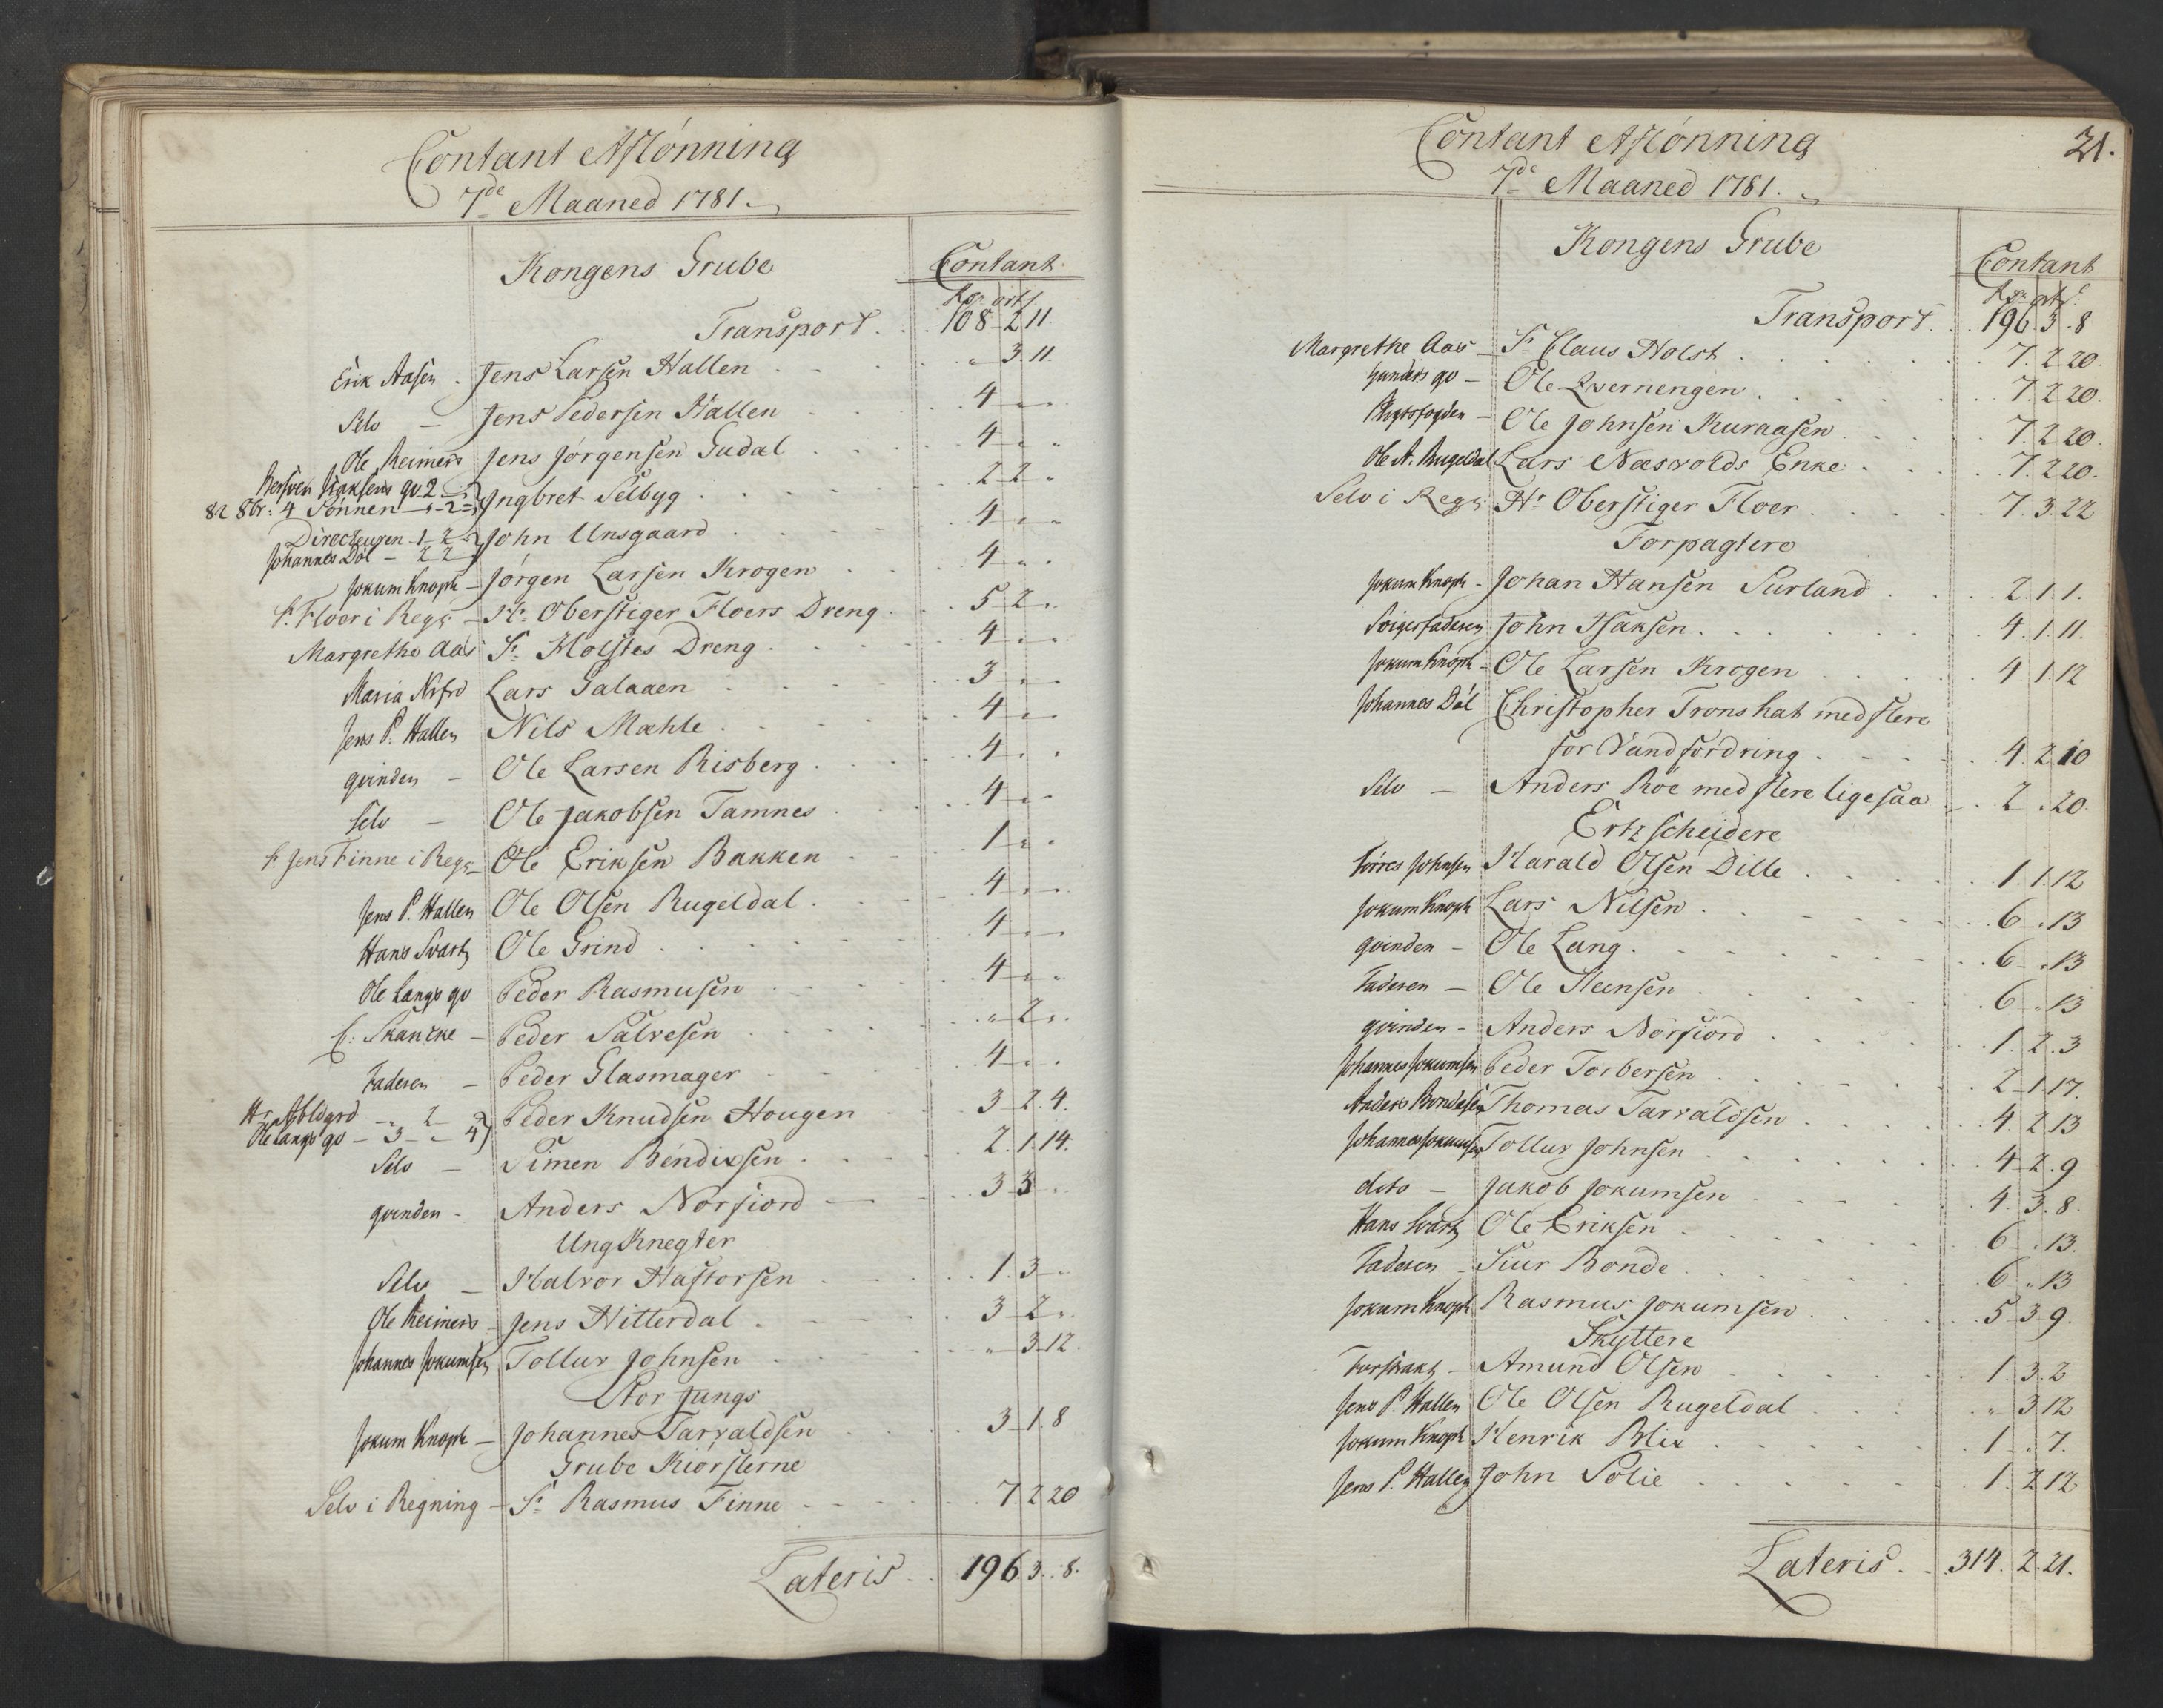 Contant Aflönning
7de Maaned 1781.
Kongens Grube
Contant
Rdr ort s
Transport . . 108 2 11.
Erik Aasen . Jens Larsen Hallen . . . „ 3 11.
Selv — Jens Pedersen Hallen . . . 4 „ „
Ole Reimers Jens Jörgensen Gudal . . . 4 „ „
Bersven Isaksens qv. 2
82 8br: 4 Sönnen — „ 2 Ingbret Selbyg . . . 2 2 „
Directeugen - 1 2 John Unsgaard . . . 4 „ „
Johannes Döl — 2 2
Jokum Knoph — Jörgen Larsen Krogen . . . 4 „ „
S. Floer i Regg — Hr. Oberstiger Floers Dreng . . . 5 2 „
Margrethe Aas Sr. Holstes Dreng . . . 4 „ „
Maria Nrfrd Lars Galaaen . . . 3 „ „
Jens P. Hallen Nils Mæhle . . . 4 „ „
qvinden — Ole Larsen Risberg . . . 4 „ „
Selv — Ole Jakobsen Tamnes . . . 4 „ „
S. Jens Finne i Regg — Ole Eriksen Bakken . . . 1 „ „
Jens P. Hallen Ole Olsen Rugeldal . . . 4 „ „
Hans Svartz Ole Grind . . . 4 „ „
Ole Langs qv Peder Rasmusen . . . 4 „ „
C: Skancke — Peder Salvesen . . . „ 2 „
Faderen — Peder Glasmager . . . 4 „ „
Hr. — „ 2 —
Ole Langs qv — 3 — „ 4 Peder Knudsen Hougen . . . 3 2 4.
Selv — Simen Bendixsen . . . 2. 1. 14.
qvinden - Anders Norfiord — . . . 3 3 „
Ung Knegter
Selv — Halvor Hastorsen . . . 1. 3 „
Ole Reimers — Jens Hitterdal . . . 3 2 „
Johannes Jokumsen Tollur Johnsen . . . „ 3 12.
Stor Jungs
Jokum Knoph — Johannes Tarvaldsen . . . 3 1. 8
Grube Kiörslerne
Selv i Regning — Sr. Rasmus Finne . . . 7. 2 20
Lateris . . 196. 3. 8.
21.
Contant Aflönning
7de Maaned 1781.
Kongens Grube
Contant
Rdr ort s
Transport . . 196. 3. 8
Margrethe Aas — Sr. Claus Holst . . . 7. 2. 20.
Gunders qv — Ole Qvernengen . . . 7. 2 20.
Ole Johnsen Kuraasen . . . 7. 2 20.
Ole A. Rugeldal Lars Næsvolds Enke . . . 7. 2 20.
Selv i Regg. Hr. Oberstiger Floer . . . 7. 3. 22
Forpagtere
Jokum Knoph - Johan Hansen Surland . . . 2. 1. 1.
Svigerfaderen John Isaksen . . . 4. 1. 11.
Jokum Knoph - Ole Larsen Krogen . . . 4. 1. 12
Johannes Döl Christopher Tronshat med flere
for Vandfordring . . . 4. 2. 10
Selv — Anders Röe med flere ligesaa . . 2. „ 20.
Ertzscheidere
Törres Johnsen Harald Olsen Dille . . . 1. 1. 12
Jokum Knoph Lars Nilsen . . . 6 „ 13
qvinden — Ole Lang . . . 6 „ 13
Faderen — Ole Steensen . . . 6 „ 13
qvinden - Anders Norfiord . . . 1. 2. 3
Johannes Jokumsen Peder Torbersen . . . 2 1. 17.
Anders Bondesen Thomas Tarvaldsen . . . 4. 2 13
Johannes Jokumsen Tollur Johnsen . . . 4 2. 9
dito — Jakob Jokumsen . . . 4. 3. 8.
Hans Svartz Ole Eriksen . . . 6 „ 13.
Faderen — Siur Bonde . . . 6 „ 13
Jokum Knoph Rasmus Jokumsen . . . 5 3 9.
Skyttere
Forstrakt — Amund Olsen . . . 1. 3. 2
Jens P. Hallen Ole Olsen Rugeldal . . . „ 3 12
Jokum Knoph Henrik Blix . . . 1 „ 7.
Jens P. Hallen John Solie . . . 1. 2 12
Lateris . . 314. 2. 21.